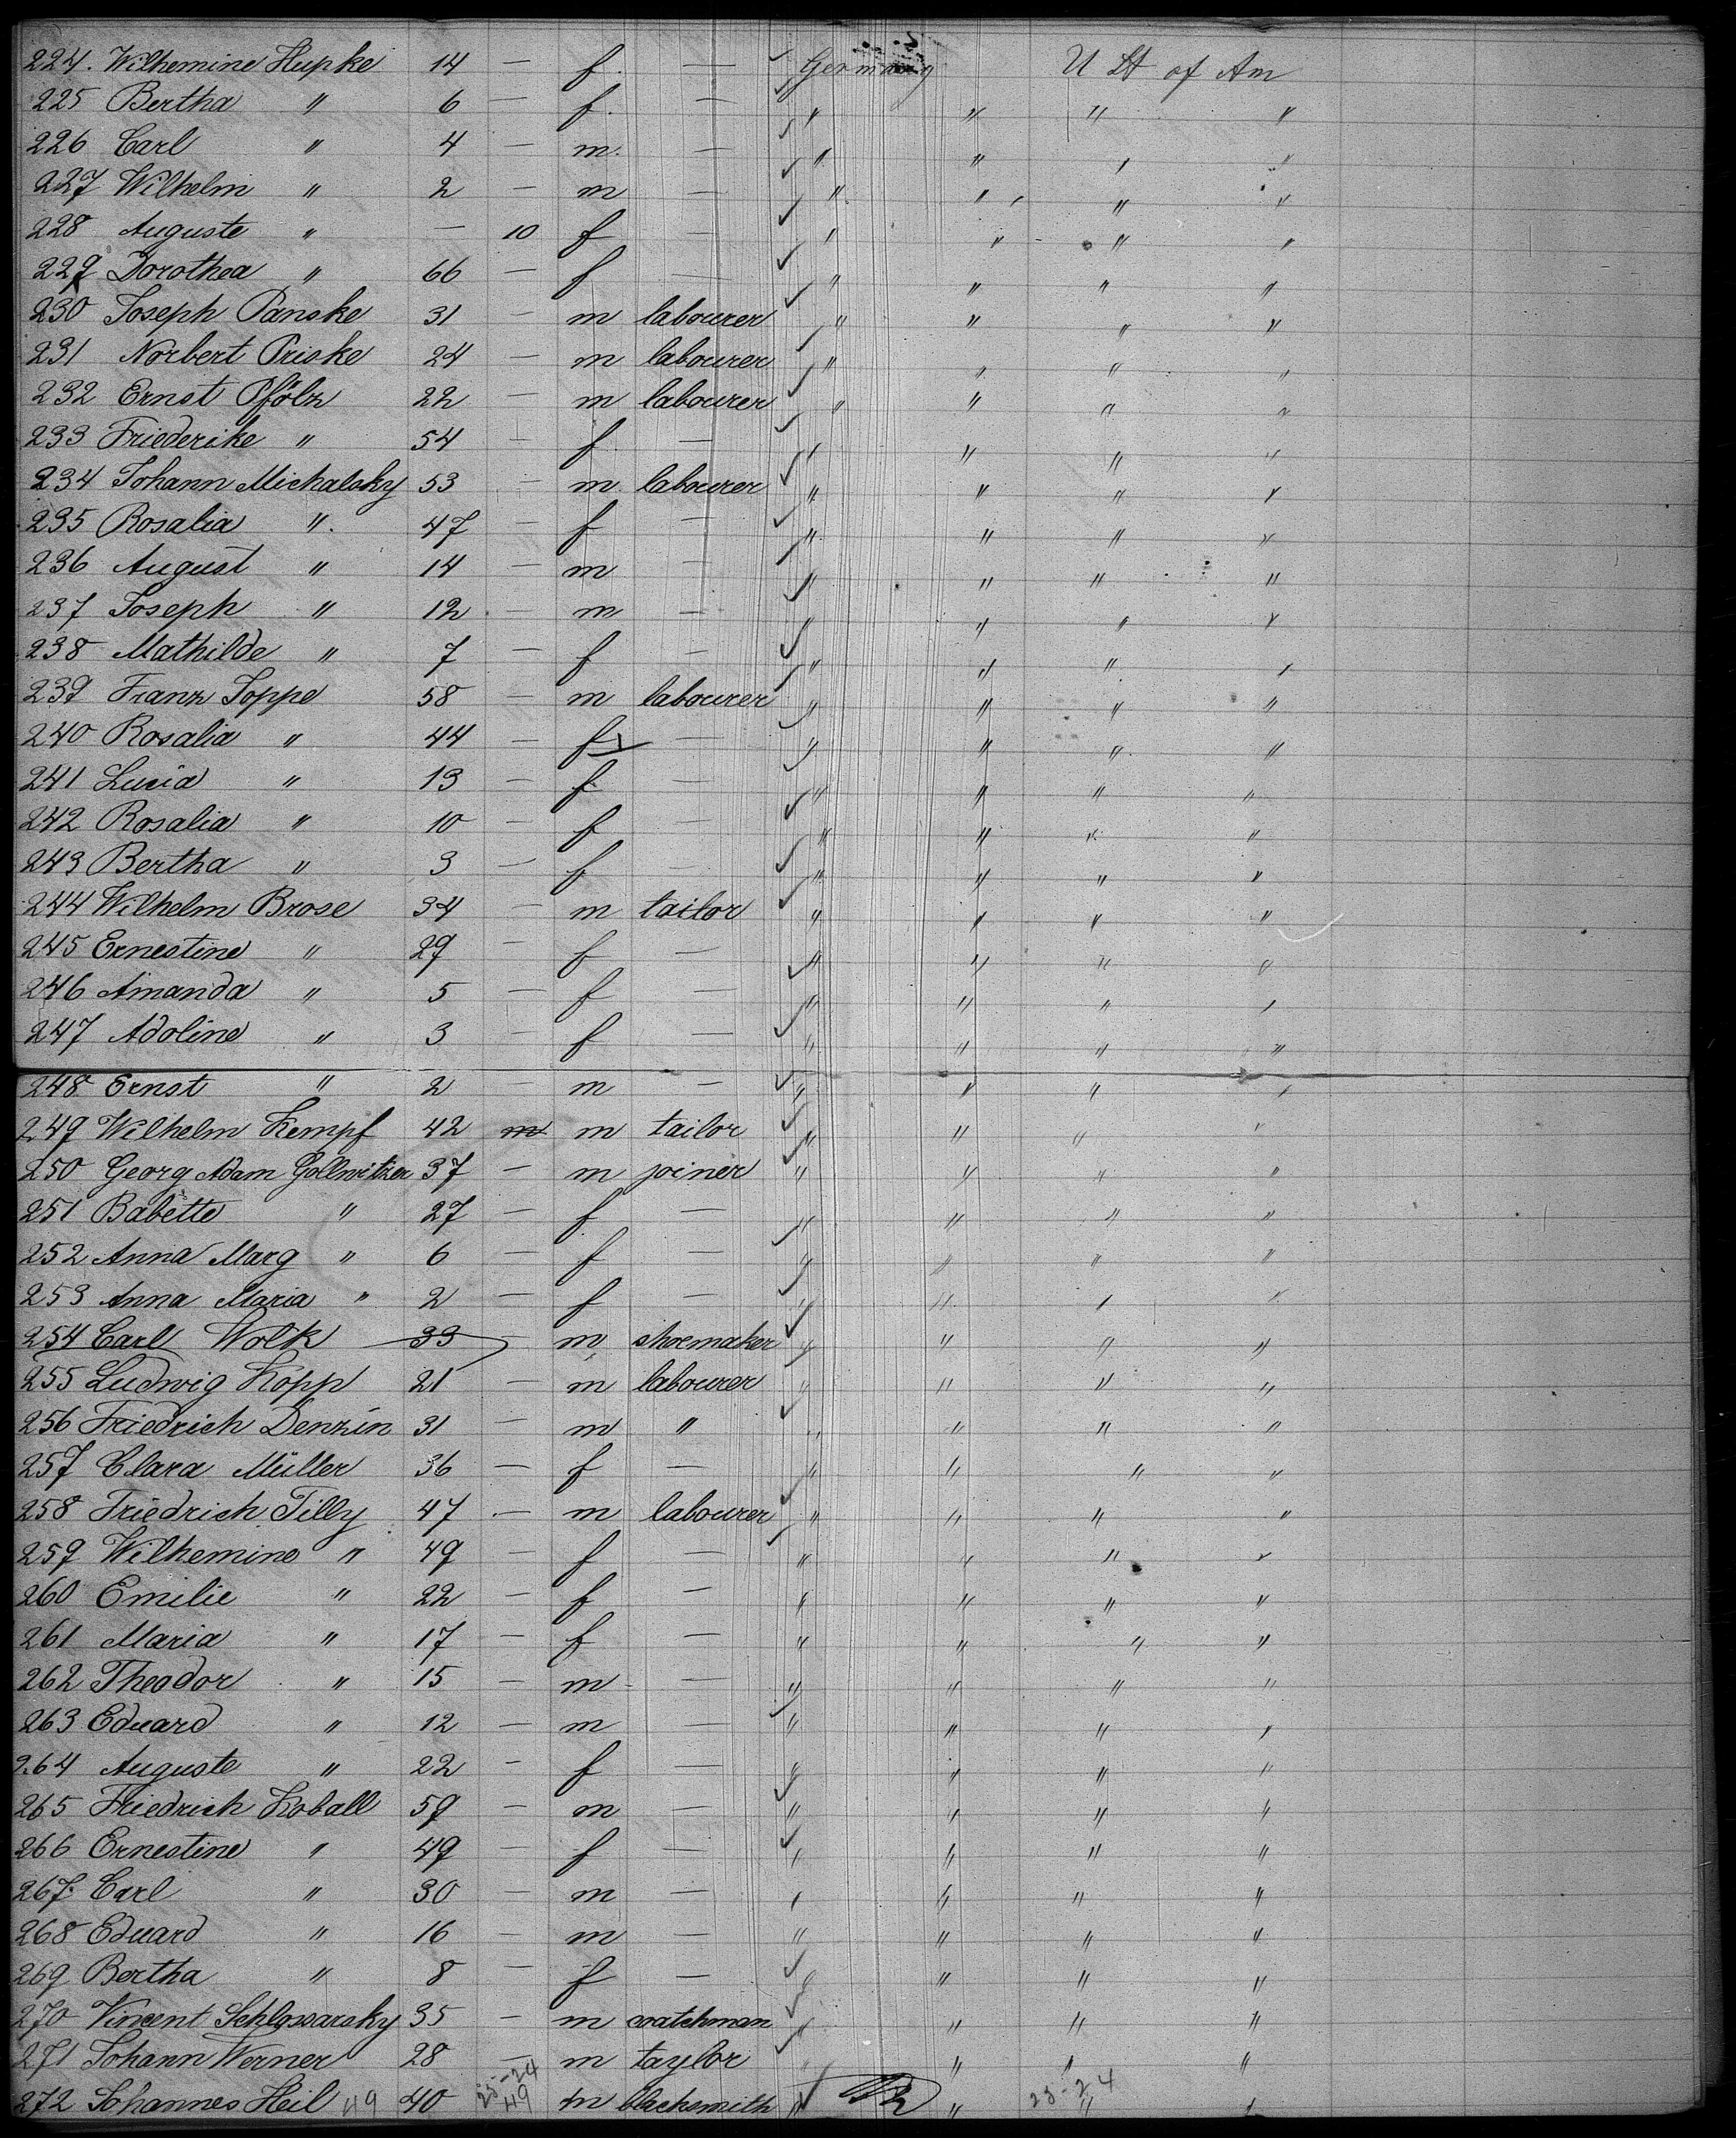 224. Wilhemine Hupke 14 — f. — Germany U St of Am
225 Bertha " 6 — f. — " " " "
226 Carl " 4 — m. — " " " "
227 Wilhelm " 2 — m — " " " "
228 Auguste " — 10 f — " " " "
229 Dorothea " 66 — f — " " " "
230 Joseph Panske 31 — m labourer " " " "
231 Norbert Priske 24 — m labourer " " " "
232 Ernst Pfölz 22 — m labourer " " " "
233 Friederike " 54 — f — " " " "
234 Johann Michalsky 53 — m labourer " " " "
235 Rosalia " 47 — f — " " " "
236 August " 14 — m — " " " "
237 Joseph " 12 — m — " " " "
238 Mathilde " 7 — f — " " " "
239 Franz Joppe 58 — m labourer " " " "
240 Rosalia " 44 — f — " " " "
241 Lucia " 13 — f — " " " "
242 Rosalia " 10 — f — " " " "
243 Bertha " 3 — f — " " " "
244 Wilhelm Brose 34 — m tailor " " " "
245 Ernestine " 29 — f — " " " "
246 Amanda " 5 — f — " " " "
247 Adoline " 3 — f — " " " "
248 Ernst " 2 — m — " " " "
249 Wilhelm Kempf 42 m m tailor " " " "
250 Georg Adam Gollwitzer 37 — m joiner " " " "
251 Babette " 27 — f — " " " "
252 Anna Marg " 6 — f — " " " "
253 Anna Maria " 2 — f — " " " "
254 Carl Wolk 33 — m shoemaker " " " "
255 Ludwig Kopp 21 — m labourer " " " "
256 Friedrich Denzin 31 — m " " " " "
257 Clara Müller 36 — f — " " " "
258 Friedrich Tilly 47 — m labourer " " " "
259 Wilhemine " 49 — f — " " " "
260 Emilie " 22 — f — " " " "
261 Maria " 17 — f — " " " "
262 Theodor " 15 — m — " " " "
263 Eduard " 12 — m — " " " "
264 Auguste " 22 — f — " " " "
265 Friedrich Koball 59 — m — " " " "
266 Ernestine " 49 — f — " " " "
267. Carl " 30 — m — " " " "
268 Eduard " 16 — m — " " " "
269 Bertha " 8 — f — " " " "
270 Vincent Schlossarsky 35 — m watchman " " " "
271 Johann Werner 28 — m taylor " " " "
272 Johannes Heil 49 40 25-24 49 m blacksmith " " 25-24 " "